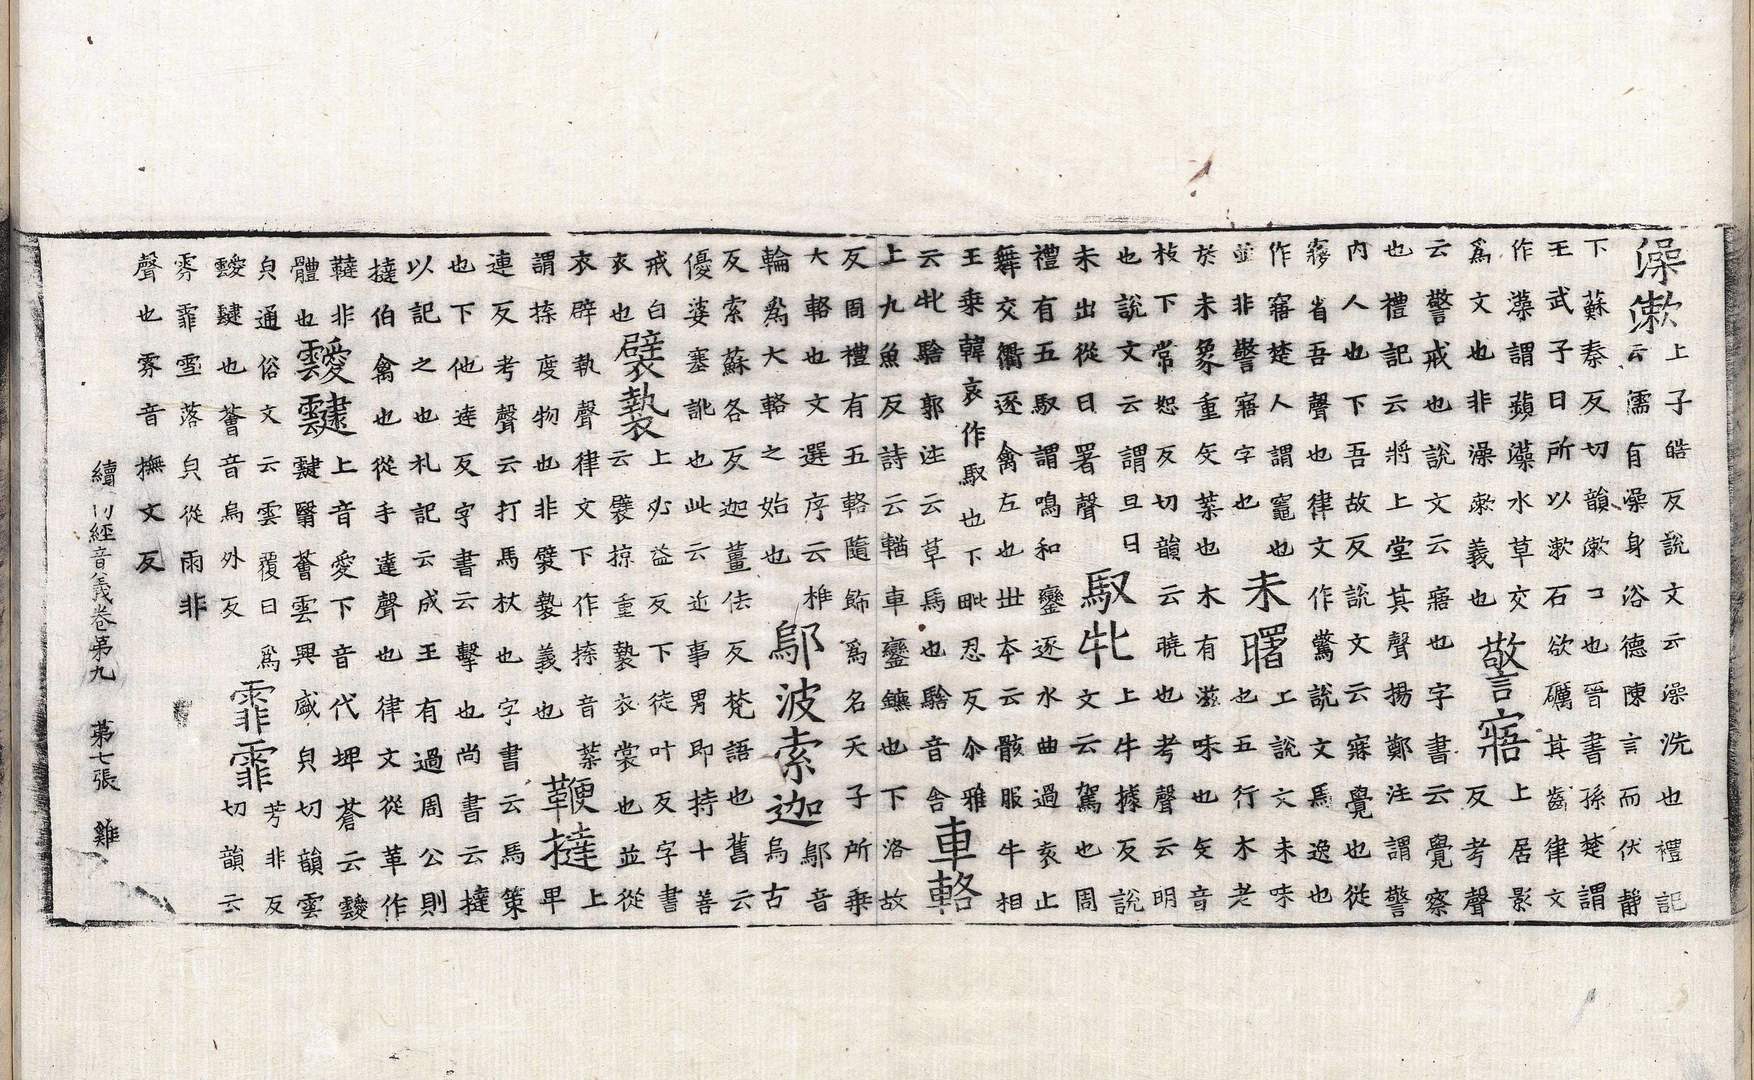 澡漱
上子皓反說文云澡洗也禮記
云儒有澡身浴德陳言而伏静
下蘇秦反切韻漱口也晉書孫楚謂
王武子曰所以漱石欲礪其齒律文
作藻謂蘋藻水草交
爲文也非澡漱義也
警寤
上居影
反考聲
云警戒也說文云寤也字書云覺察
也禮記云將上堂其聲揚鄭注謂警
內人也下吾故反說文云寐覺也從
㝱省吾聲也律文作驚說文馬逸也
作寤楚人謂竈也
並非警寤字也
未曙
上說文未味
也五行木老
於未象重矢菜也木有滋味也矢音
枝下常恕反切韻云曉也考聲云明
也說文云謂旦日
未出從日署聲
馭牝
上牛據反說
文云駕也周
禮有五馭謂鳴和鑾逐水曲過表止
舞交衢逐禽左也世本云骸服牛相
王乗韓哀作馭也下毗忍反尒雅
云牝騇郭注云草馬也騇音舍
車輅
上九魚反詩云輶車鑾鑣也下洛故
反周禮有五輅隨飾爲名天子所乗
大輅也文選序云椎
輪爲大輅之始也
鄔波索迦
鄔音
烏古
反索蘇各反迦薑佉反梵語也舊云
優婆塞訛也此云近事男即持十善
戒白
衣也
襞褺
上必益反下徒叶反字書
云襞掠重褺衣裳也並從
衣辟執聲律文下作捺音菜
謂捺度物也非襞褺義也
鞭撻
上卑
連反考聲云打馬杖也字書云馬策
也下他達反字書云擊也尚書云撻
以記之也札記云成王有過周公則
撻伯禽也從手達聲也律文從革作
韃非
體也
靉靆
上音愛下音代埤蒼云靉
靆翳薈雲興盛皃切韻雲
皃通俗文云雲覆日爲
靉靆也薈音烏外反
霏霏
芳非反
切韻云
雰霏雪落皃從雨非
聲也雰音撫文反
續一切經音義卷第九　第七張　雞